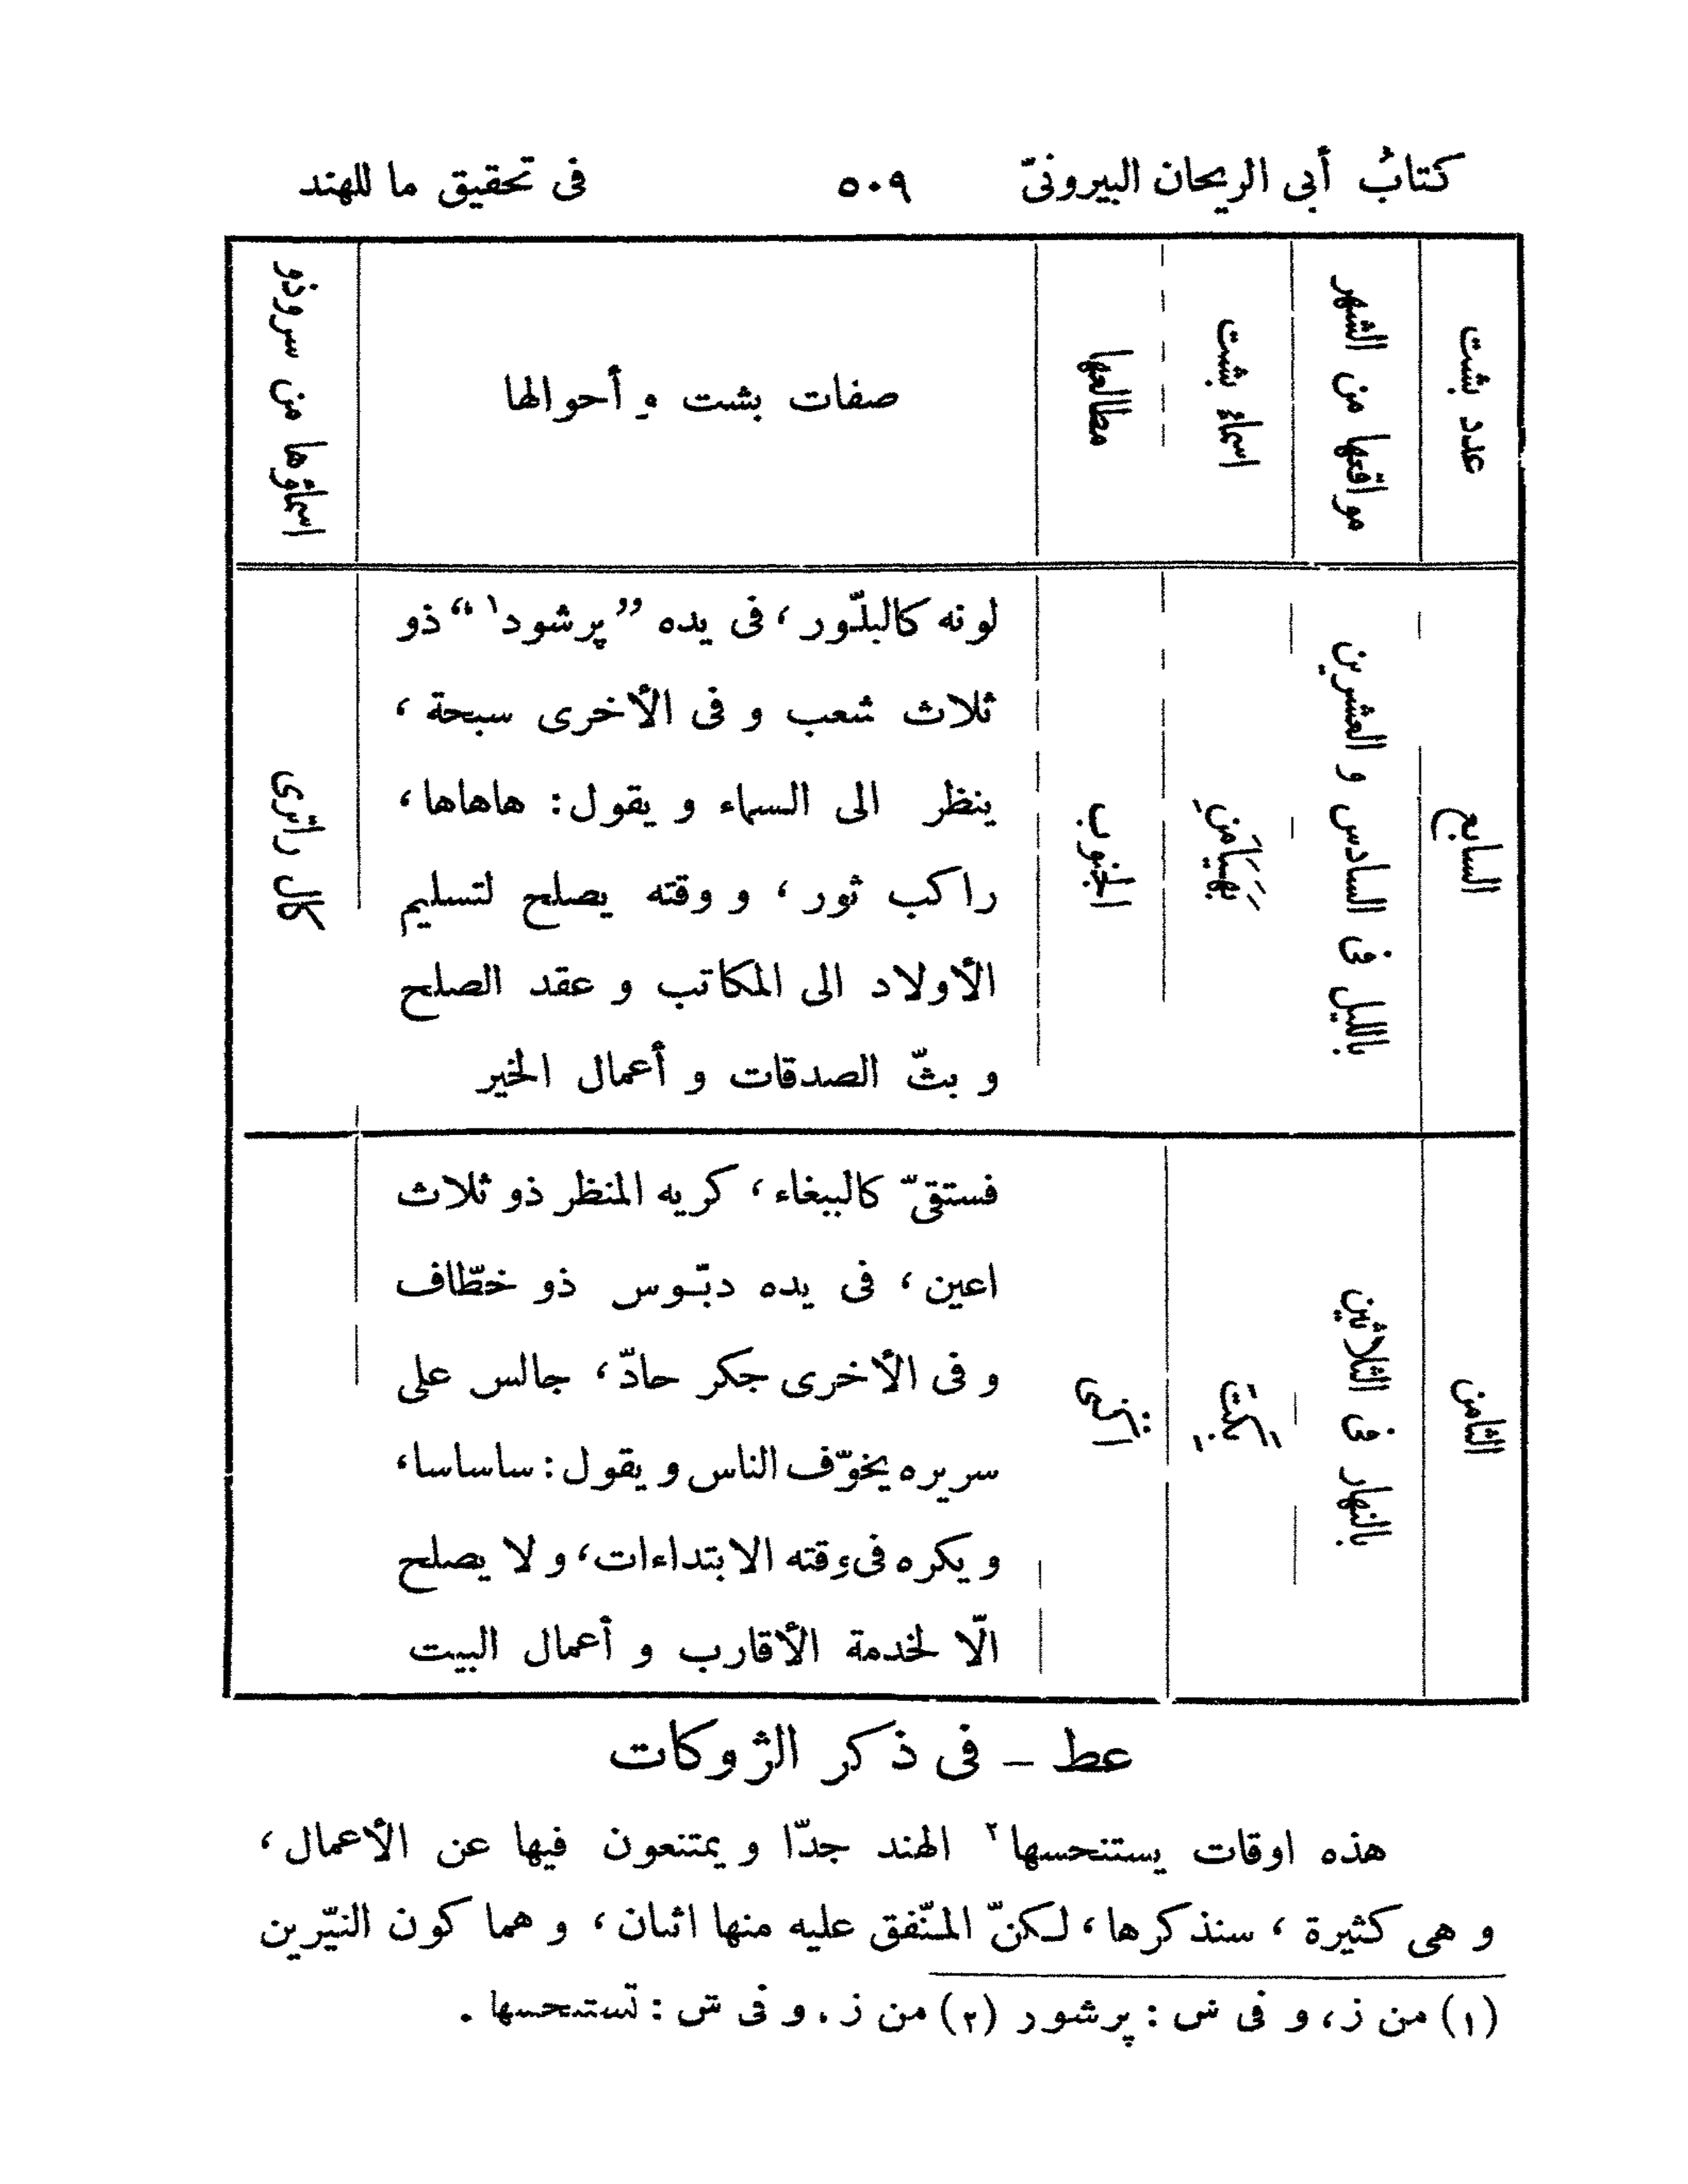 كتابُ أبى الريحان البيرونىّ ٥٠٩ فى تحقيق ما للهند
عدد بشت
مواقعها من الشهر
اسماءُ بشت
مطالعها
صفات بشت و أحوالها
اسماؤها من سروذو
السابع
بالليل فى السادس و العشرين
الجنوب
لونه كالبلّور ، فى يده ”پرشود١“ ذو
ثلاث شعب و فى الأخرى سبحة ،
ينظر الى السماء و يقول : هاهاها ،
راكب ثور ، و وقته يصلح لتسليم
الأولاد الى المكاتب و عقد الصلح
و بثّ الصدقات و أعمال الخير
كال راترى
الثامن
بالنهار فى الثلاثين
فستقىّ كالببغاء ، كريه المنظر ذو ثلاث
اعين ، فى يده دبّوس ذو خطّاف
و فى الأخرى جكر حادّ ، جالس على
سريره يخوّف الناس و يقول : ساساسا ،
و يكره فى وقته الابتداءات ، و لا يصلح
الّا لخدمة الأقارب و أعمال البيت
عط – فى ذكر الژوكات
هذه اوقات يستنحسها٢ الهند جدّا و يمتنعون فيها عن الأعمال ،
و هى كثيرة ، سنذكرها ، لكنّ المتّفق عليه منها اثنان ، و هما كون النيّرين
(١) من ز ، و فى ش : پرشور (٢) من ز ، و فى ش : تستحسها .